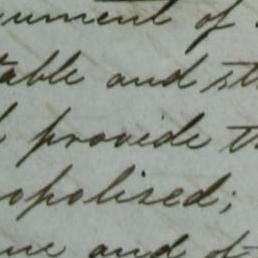 ument of
table and st
provide th
opolised;
and of